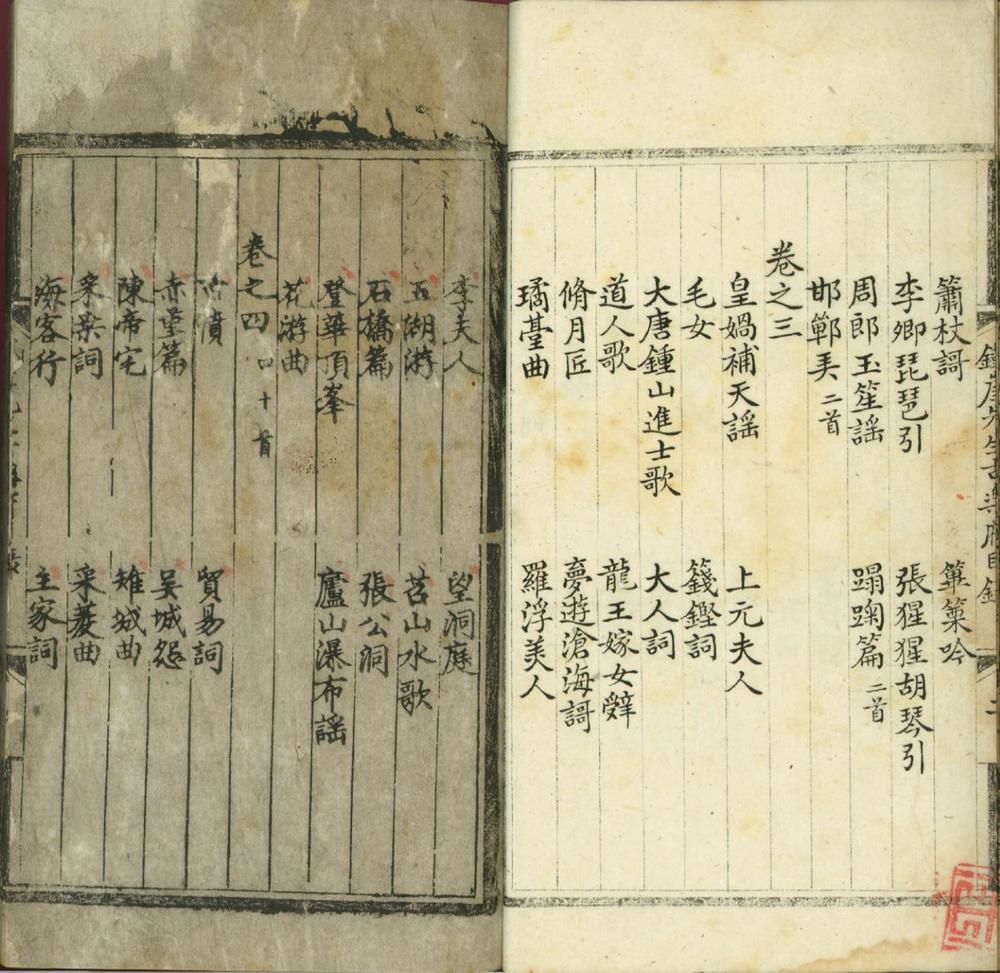 簫杖謌 篳篥吟
李卿琵琶引 張猩猩胡琴引
周郎玉笙謡 蹋踘篇 二首
邯鄲美 二首
卷之三
皇媧補天謡 上元夫人
毛女 篯鏗詞
大唐鍾山進士歌 大人詞
道人歌 龍王嫁女辤
脩月匠 夢遊滄海謌
璚䑓曲 羅浮美人
李夫人 望洞庭
五湖游 苕山水歌
石橋篇 張公洞
登華頂峯 廬山瀑布謡
花游曲
卷之四 四十首
憤 貿易詞
赤堇篇 吴城怨
陳帝宅 雉城曲
桑詞 采菱曲
海客行 主家詞